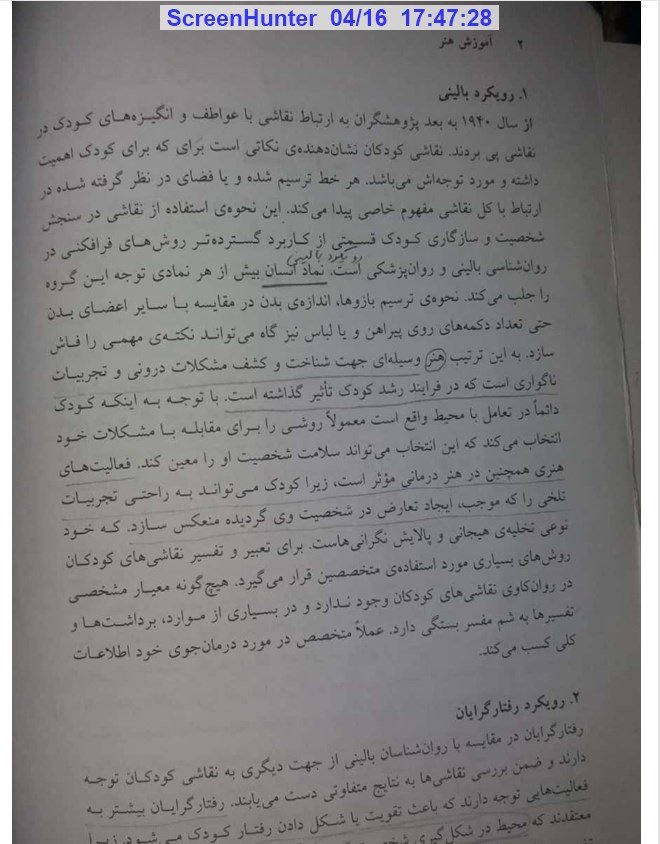 ScreenHunter 04/16 17:47:28
۲ آموزش هنر
۱. رویکرد بالینی
از سال ۱۹۴۰ به بعد پژوهشگران به ارتباط نقاشی با عواطف و انگیزه‌های کودک در
نقاشی پی بردند. نقاشی کودکان نشان‌دهنده‌ی نکاتی است برای که برای کودک اهمیت
داشته و مورد توجه‌اش می‌باشد. هر خط ترسیم شده و یا فضای در نظر گرفته شده در
ارتباط با کل نقاشی مفهوم خاصی پیدا می‌کند. این نحوه‌ی استفاده از نقاشی در سنجش
شخصیت و سازگاری کودک قسمتی از کاربرد گسترده‌تر روش‌های فرافکنی در
رویکرد بالینی
روان‌شناسی بالینی و روان‌پزشکی است. نماد انسان بیش از هر نمادی توجه این گروه
را جلب می‌کند. نحوه‌ی ترسیم بازوها، اندازه‌ی بدن در مقایسه با سایر اعضای بدن
حتی تعداد دکمه‌های روی پیراهن و یا لباس نیز گاه می‌تواند نکته‌ی مهمی را فاش
سازد. به این ترتیب هنر وسیله‌ای جهت شناخت و کشف مشکلات درونی و تجربیات
ناگواری است که در فرایند رشد کودک تأثیر گذاشته است. با توجه به اینکه کودک
دائماً در تعامل با محیط واقع است معمولاً روشی را برای مقابله با مشکلات خود
انتخاب می‌کند که این انتخاب می‌تواند سلامت شخصیت او را معین کند. فعالیت‌های
هنری همچنین در هنر درمانی مؤثر است، زیرا کودک می‌تواند به راحتی تجربیات
تلخی را که موجب، ایجاد تعارض در شخصیت وی گردیده منعکس سازد. که خود
نوعی تخلیه‌ی هیجانی و پالایش نگرانی‌هاست. برای تعبیر و تفسیر نقاشی‌های کودکان
روش‌های بسیاری مورد استفاده‌ی متخصصین قرار می‌گیرد. هیچ‌گونه معیار مشخصی
در روان‌کاوی نقاشی‌های کودکان وجود ندارد و در بسیاری از موارد، برداشت‌ها و
تفسیرها به شم مفسر بستگی دارد. عملاً متخصص در مورد درمان‌جوی خود اطلاعات
کلی کسب می‌کند.
۲. رویکرد رفتارگرایان
رفتارگرایان در مقایسه با روان‌شناسان بالینی از جهت دیگری به نقاشی کودکان توجه
دارند و ضمن بررسی نقاشی‌ها به نتایج متفاوتی دست می‌یابند. رفتارگرایان بیشتر به
فعالیت‌هایی توجه دارند که باعث تقویت یا شکل دادن رفتار کودک می‌شود. زیرا
معتقدند که محیط در شکل‌گیری